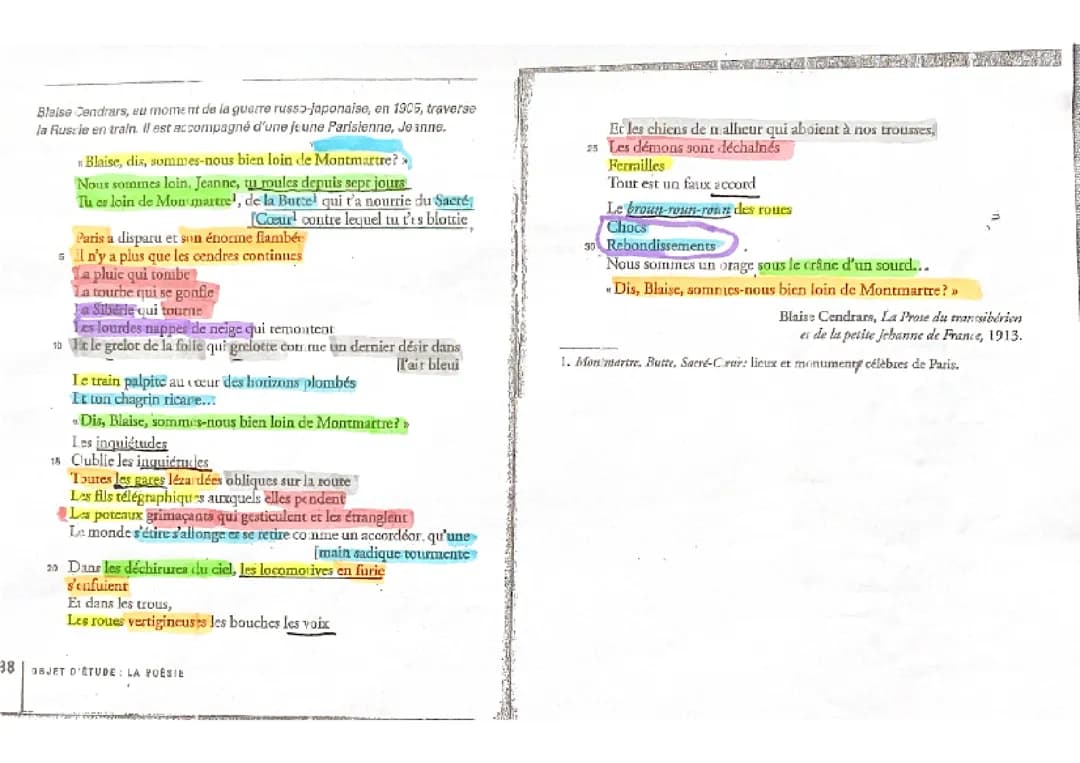 Blaise Cendrars, au moment de la guerre russo-japonaise, en 1905, traverse
la Russie en train. Il est accompagné d'une jeune Parisienne, Jeanne.
« Blaise, dis, sommes-nous bien loin de Montmartre? »
Nous sommes loin, Jeanne, tu roules depuis sept jours
Tu es loin de Montmartre¹, de la Butte¹ qui t'a nourrie du Sacré-
[Cœur¹ contre lequel tu t'es blottie
Paris a disparu et son énorme flambée
5 Il n'y a plus que les cendres continues
La pluie qui tombe
La tourbe qui se gonfle
La Sibérie qui tourne
Les lourdes nappes de neige qui remontent
10 Et le grelot de la folie qui grelotte comme un dernier désir dans
[l'air bleui
Le train palpite au cœur des horizons plombés
Et ton chagrin ricane...
« Dis, Blaise, sommes-nous bien loin de Montmartre? »
Les inquiétudes
15 Oublie les inquiétudes
Toutes les gares lézardées obliques sur la route
Les fils télégraphiques auxquels elles pendent
Les poteaux grimaçants qui gesticulent et les étranglent
Le monde s'étire s'allonge et se retire comme un accordéon qu'une
[main sadique tourmente
20 Dans les déchirures du ciel, les locomotives en furie
s'enfuient
Et dans les trous,
Les roues vertigineuses les bouches les voix
38 OBJET D'ÉTUDE : LA POÉSIE
Et les chiens de malheur qui aboient à nos trousses,
25 Les démons sont déchaînés
Ferrailles
Tout est un faux accord
Le broun-roun-roun des roues
Chocs
30 Rebondissements
Nous sommes un orage sous le crâne d'un sourd...
« Dis, Blaise, sommes-nous bien loin de Montmartre? »
Blaise Cendrars, La Prose du transsibérien
et de la petite Jehanne de France, 1913.
1. Montmartre, Butte, Sacré-Cœur: lieux et monuments célèbres de Paris.